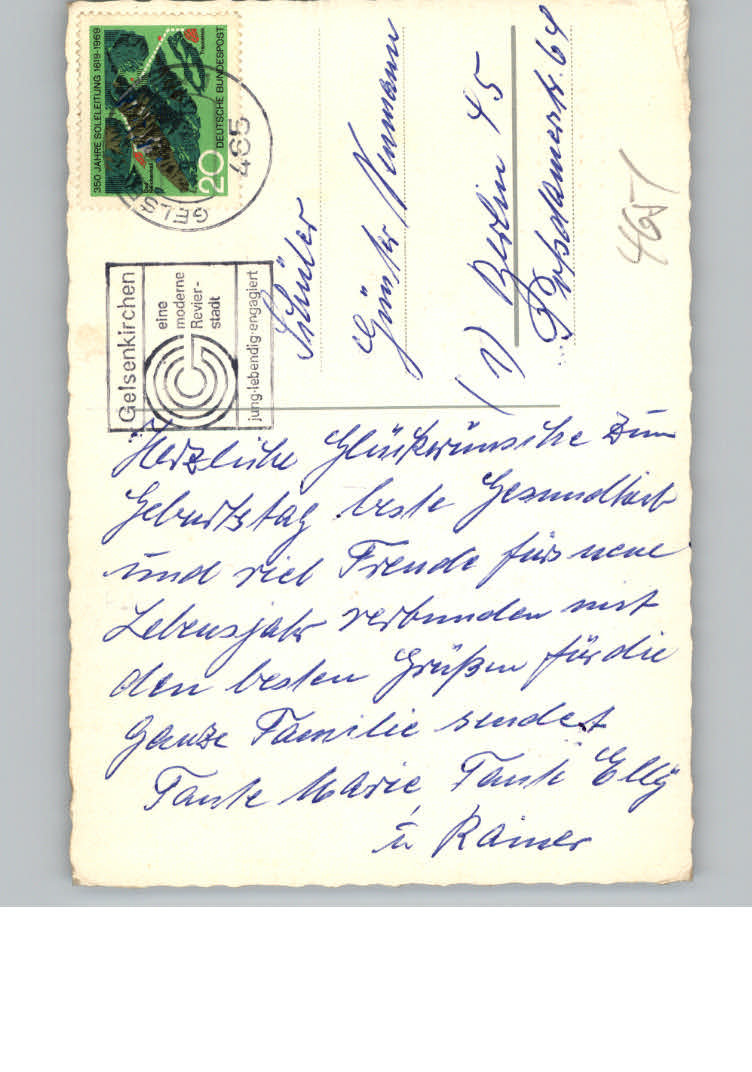 350 JAHRE SOLELEITUNG 1619-1969
Traunstein
Bad Reichenhall
20
DEUTSCHE BUNDESPOST
GELS
465
Gelsenkirchen
eine
moderne
Revier-
stadt
jung·lebendig·engagiert
Schüler
Günter Neumann
(1) Berlin 45
Potsdamerstr. 64
4651
Herzliche Glückwünsche zum
Geburtstag beste Gesundheit
und viel Freude fürs neue
Lebensjahr verbunden mit
den besten Grüßen für die
ganze Familie sendet
Tante Marie, Tante Elly
u Rainer